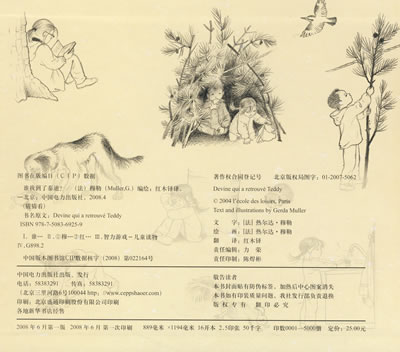 图书在版编目（CIP）数据
谁找到了泰迪？／（法）穆勒（Muller,G.）编绘；红木译.
—北京：中国电力出版社，2008.4
（猫猫看）
书名原文：Devine qui a retrouvé Teddy
ISBN 978-7-5083-6925-9
Ⅰ.谁… Ⅱ.①穆…②红… Ⅲ.智力游戏－儿童读物
Ⅳ.G898.2
中国版本图书馆CIP数据核字（2008）第022164号
中国电力出版社出版、发行
电话：58383291 传真：58383291
（北京三里河路6号100044 http://www.ceppshaoer.com）
印刷：北京盛通印刷股份有限公司印刷
各地新华书店经售
著作权合同登记号 北京版权局图字：01-2007-5062
Devine qui a retrouvé Teddy
© 2004 l'école des loisirs, Paris
Text and illustrations by Gerda Muller
文 字：［法］热尔达·穆勒
绘 画：［法］热尔达·穆勒
翻 译：红木译
责任编辑：力 荣
责任印制：陈焊彬
敬告读者
本书封面贴有防伪标签，加热后中心图案消失
本书如有印装质量问题，我社发行部负责退换
版 权 专 有 翻 印 必 究
2008年6月第一版 2008年6月第一次印刷 889毫米×1194毫米 16开本 2.5印张 50千字 印数0001-5000册 定价：25.00元